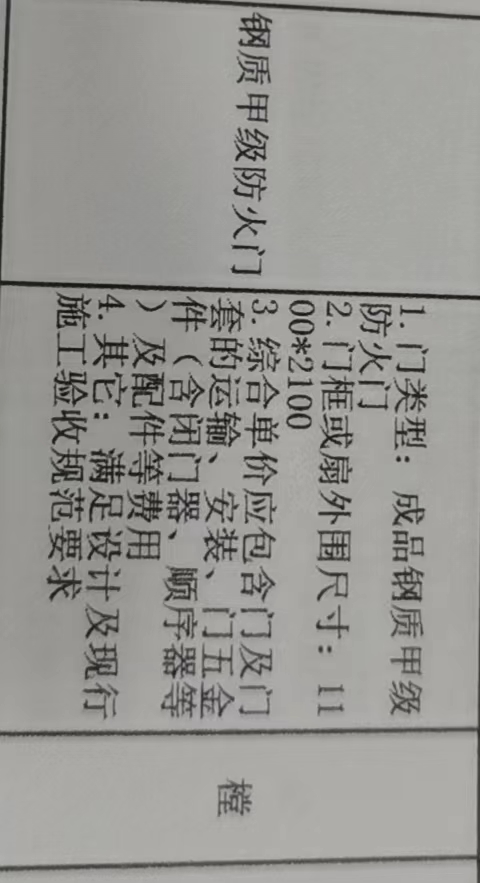 钢质甲级防火门
1. 门类型：成品钢质甲级
防火门
2. 门框或扇外围尺寸：11
00*2100
3. 综合单价应包含门及门
套的运输、安装、门五金
件（含闭门器、顺序器等
）及配件等费用
4. 其它：满足设计及现行
施工验收规范要求
樘